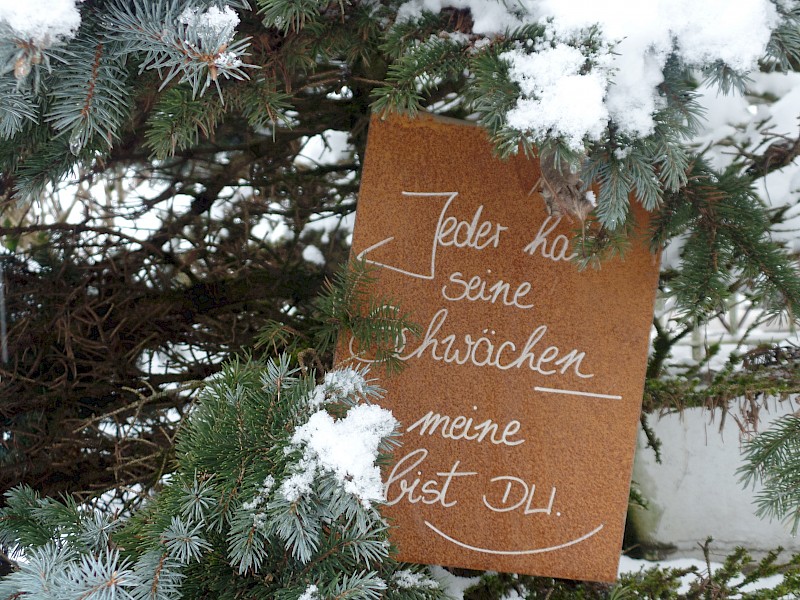 Jeder ha
seine
Schwächen
meine
bist DU.